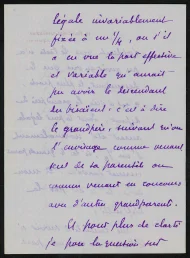 légale invariablement
fixée à un 1/4, ou s'il
a en vue la part effective
et variable qu'aurait
pu avoir le descendant
du bisaïeul : c'est à dire
le grandpère, suivant qu'on
l'envisage comme venant
seul de sa parentèle ou
comme venant en concours
avec d'autres grandparents.
Et pour plus de clarté
je pose la question sur